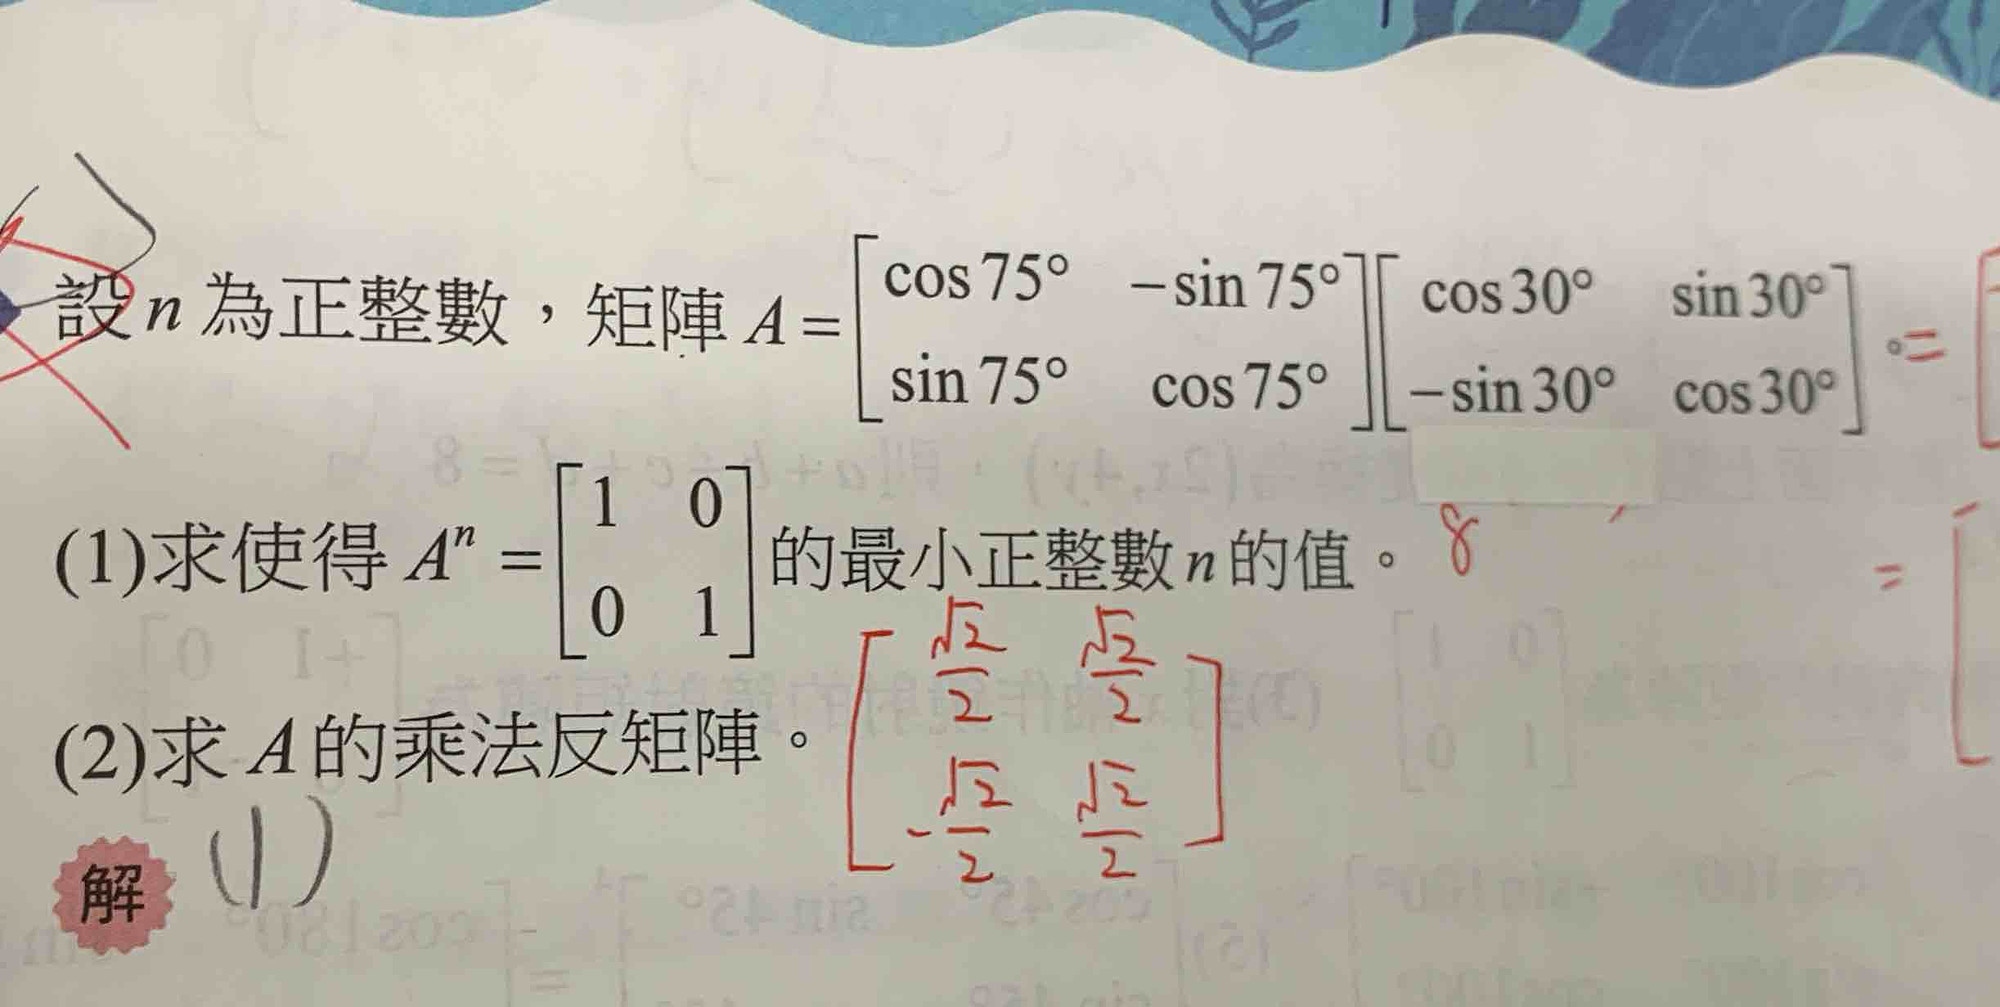 設 n 為正整數，矩陣 A = [cos 75° −sin 75° [cos 30° sin 30°
sin 75° cos 75°] −sin 30° cos 30°]。=
(1)求使得 Aⁿ = [1 0
0 1] 的最小正整數 n 的值。 8
=
(2)求 A 的乘法反矩陣。 [√2/2 √2/2
-√2/2 √2/2]
解 (1)